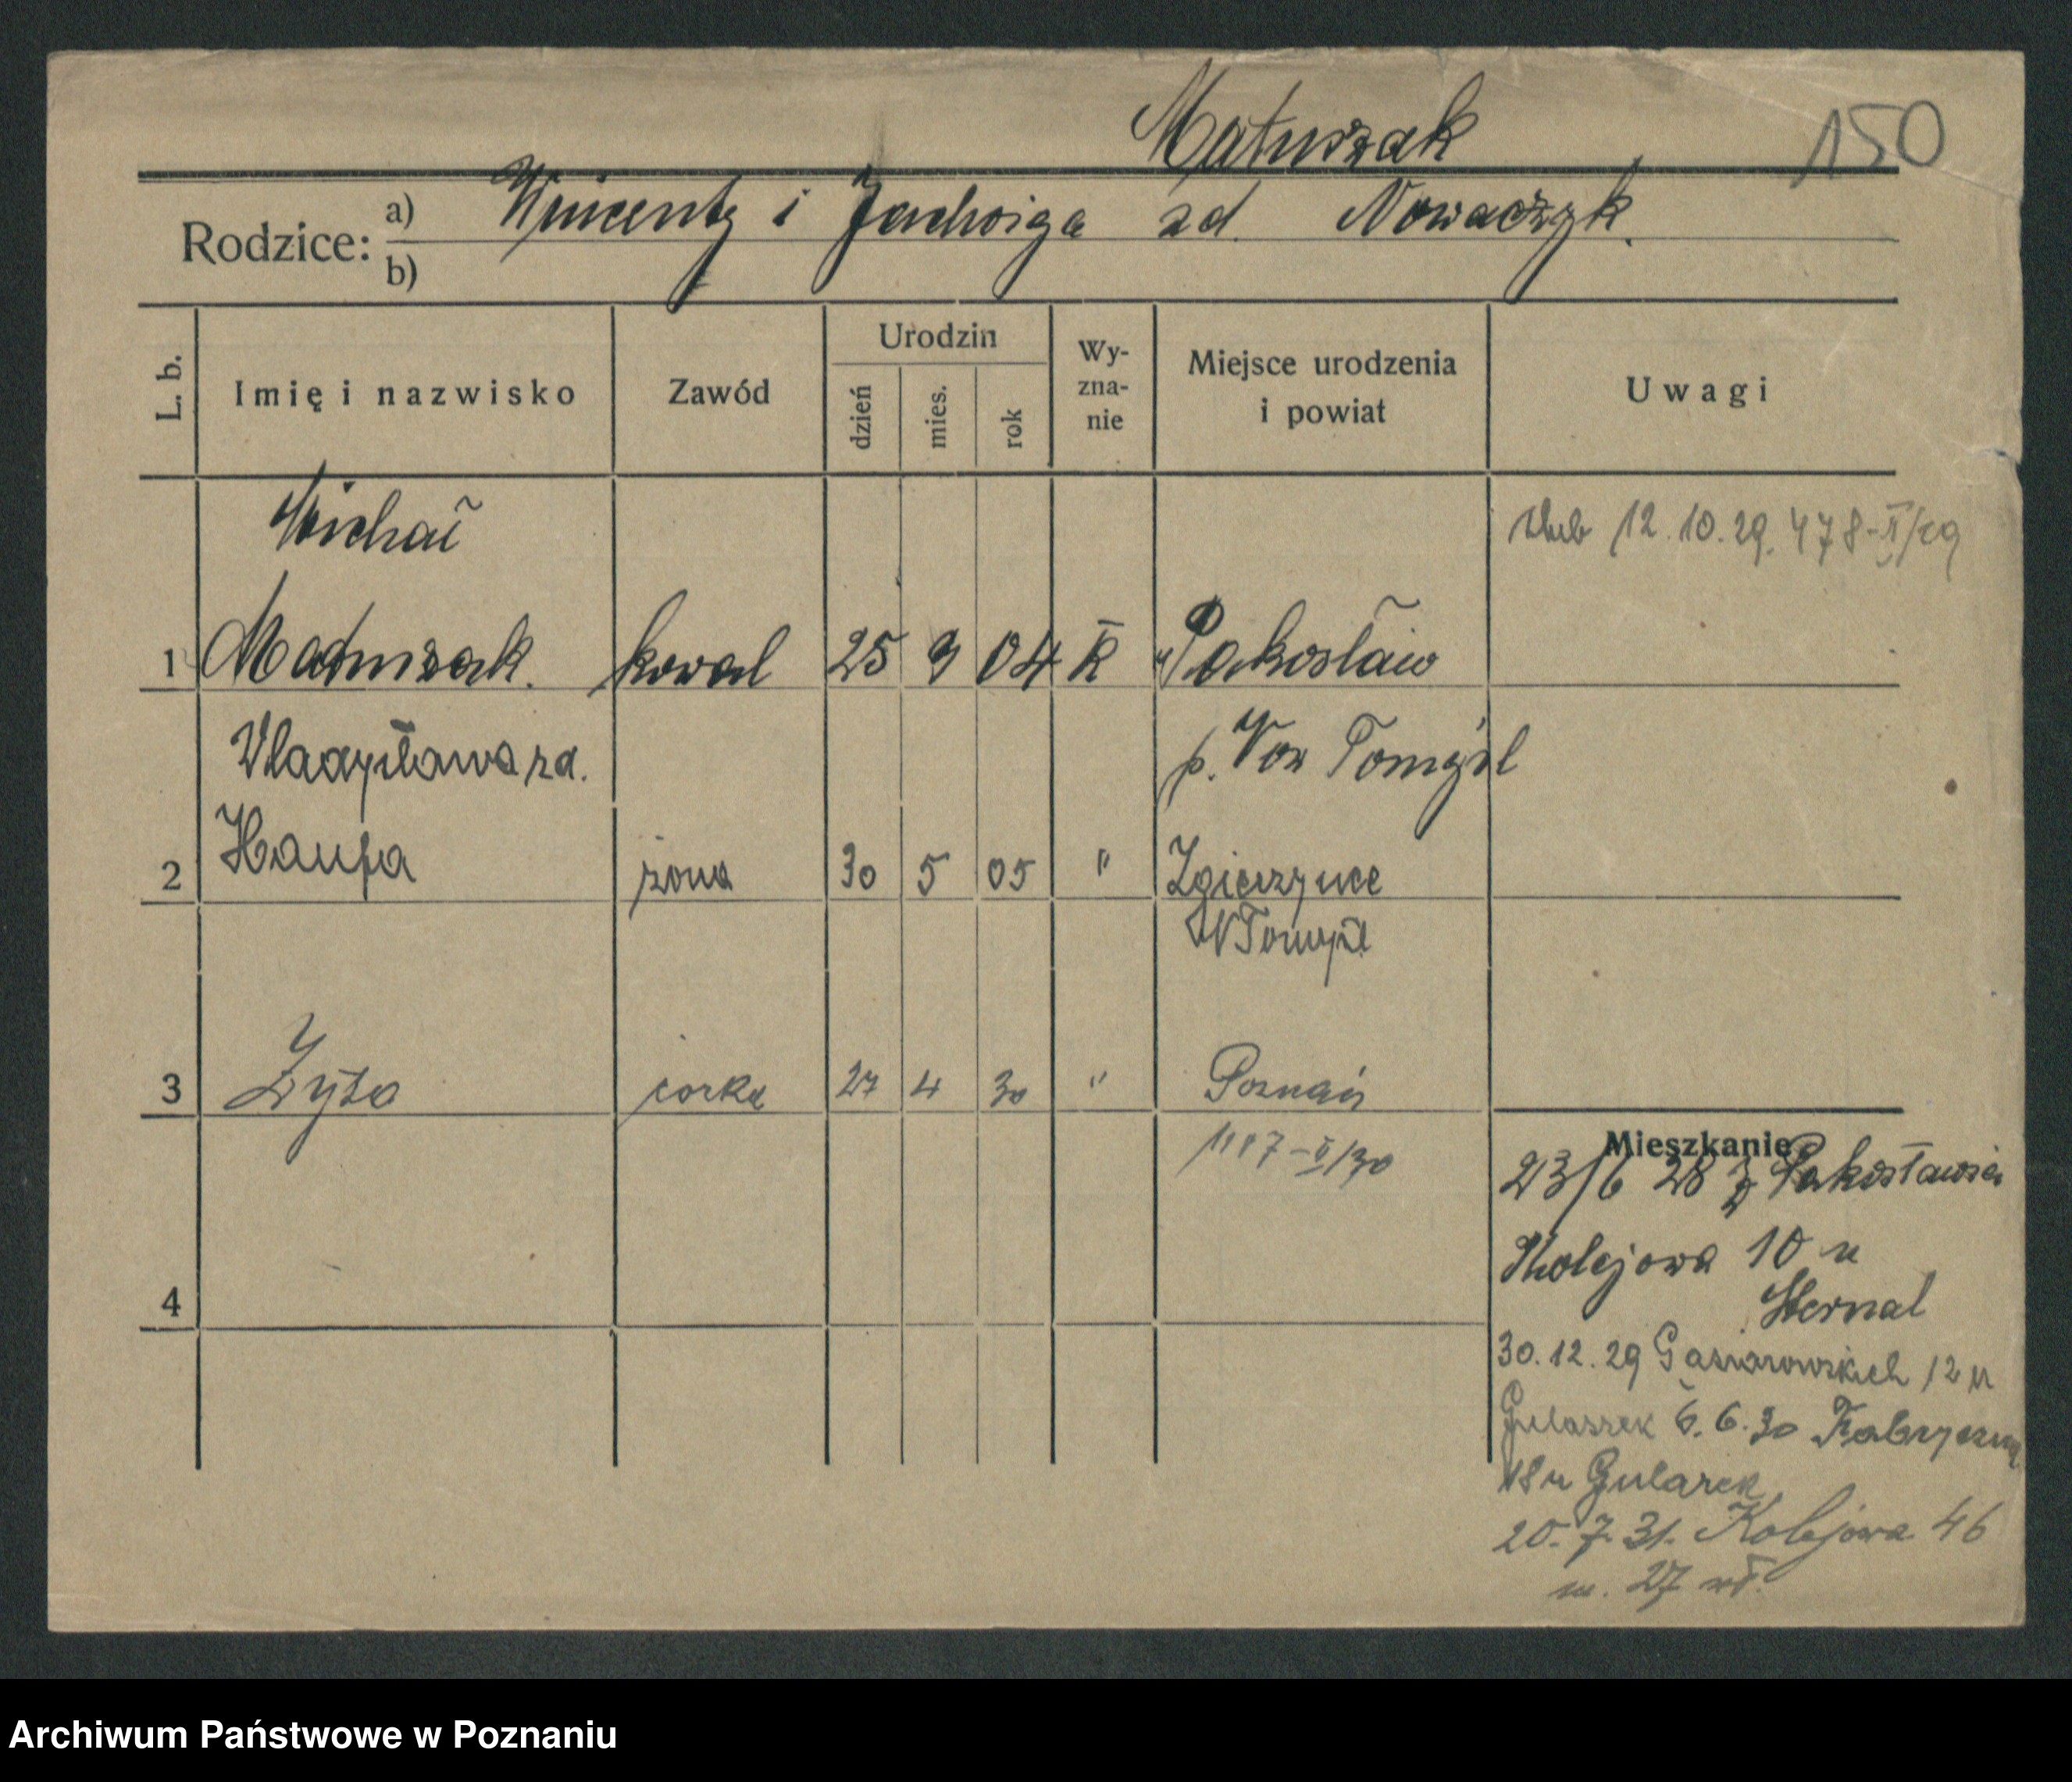 Matuszak 150
Rodzice: a) Wincenty i Jadwiga zd. Nowaczyk.
b)
L. b. Imię i nazwisko Zawód Urodzin dzień mies. rok Wy-zna-nie Miejsce urodzenia i powiat Uwagi
Michał ślub 12.10.29. 478-II/29
1 Matuszak. kowal 25 9 04 K Pakosław
Władysława zd. p. Now Tomyśl
2 Haupa żona 30 5 05 " Zgierzynce
N Tomyśl
3 Zyta córka 27 4 30 " Poznań
1187-II/30
Mieszkanie
23/6 28 z Pakosławia
4 Kolejowa 10 u
Hernal
30.12.29 Gąsiorowskich 12 u
Gulaszek 6.6.30 Fabryczna
18 u Gularek
20.7.31. Kolejowa 46
m. 27 wł.
Archiwum Państwowe w Poznaniu